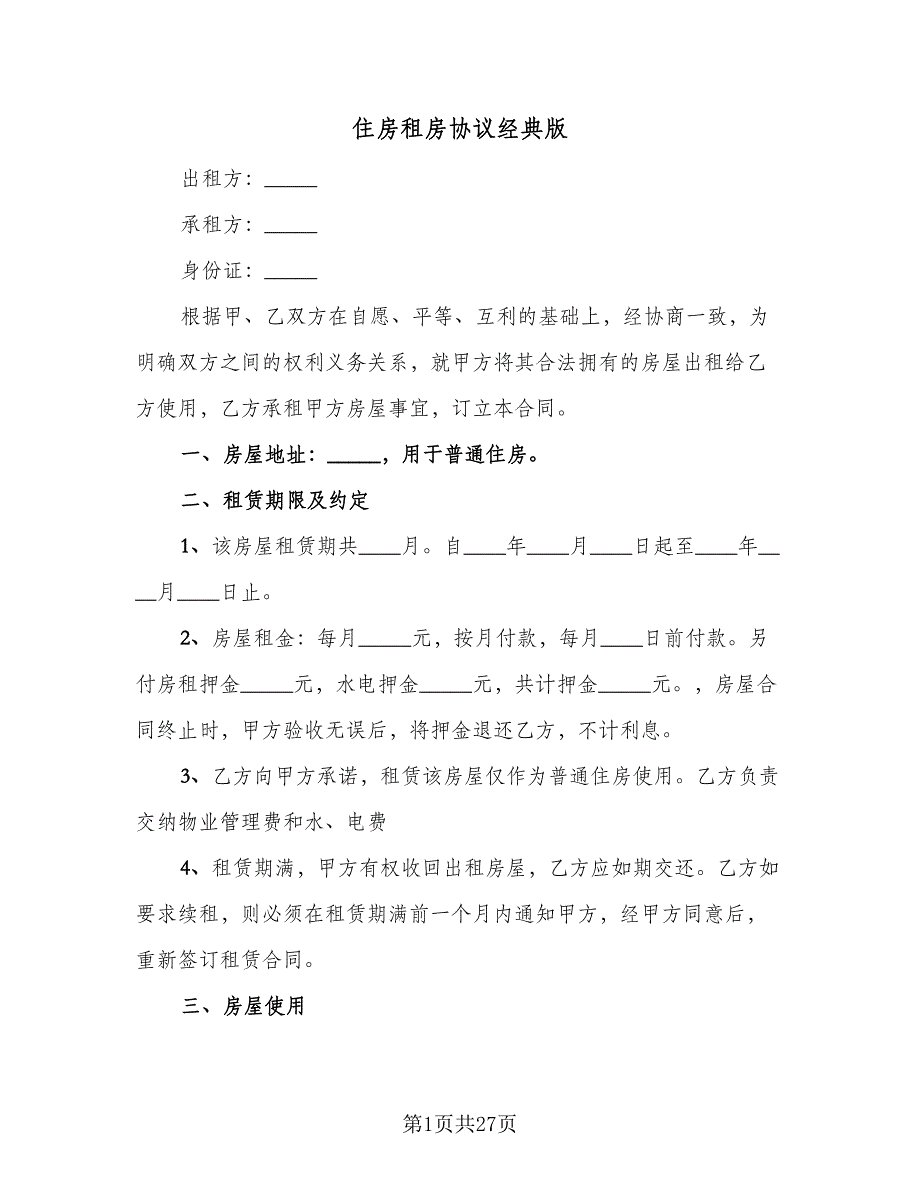 住房租房协议经典版
出租方：_____
承租方：_____
身份证：_____
根据甲、乙双方在自愿、平等、互利的基础上，经协商一致，为
明确双方之间的权利义务关系，就甲方将其合法拥有的房屋出租给乙
方使用，乙方承租甲方房屋事宜，订立本合同。
一、房屋地址：_____，用于普通住房。
二、租赁期限及约定
1、该房屋租赁期共____月。自____年____月____日起至____年__
__月____日止。
2、房屋租金：每月_____元，按月付款，每月____日前付款。另
付房租押金_____元，水电押金_____元，共计押金_____元。，房屋合
同终止时，甲方验收无误后，将押金退还乙方，不计利息。
3、乙方向甲方承诺，租赁该房屋仅作为普通住房使用。乙方负责
交纳物业管理费和水、电费
4、租赁期满，甲方有权收回出租房屋，乙方应如期交还。乙方如
要求续租，则必须在租赁期满前一个月内通知甲方，经甲方同意后，
重新签订租赁合同。
三、房屋使用
第1页共27页